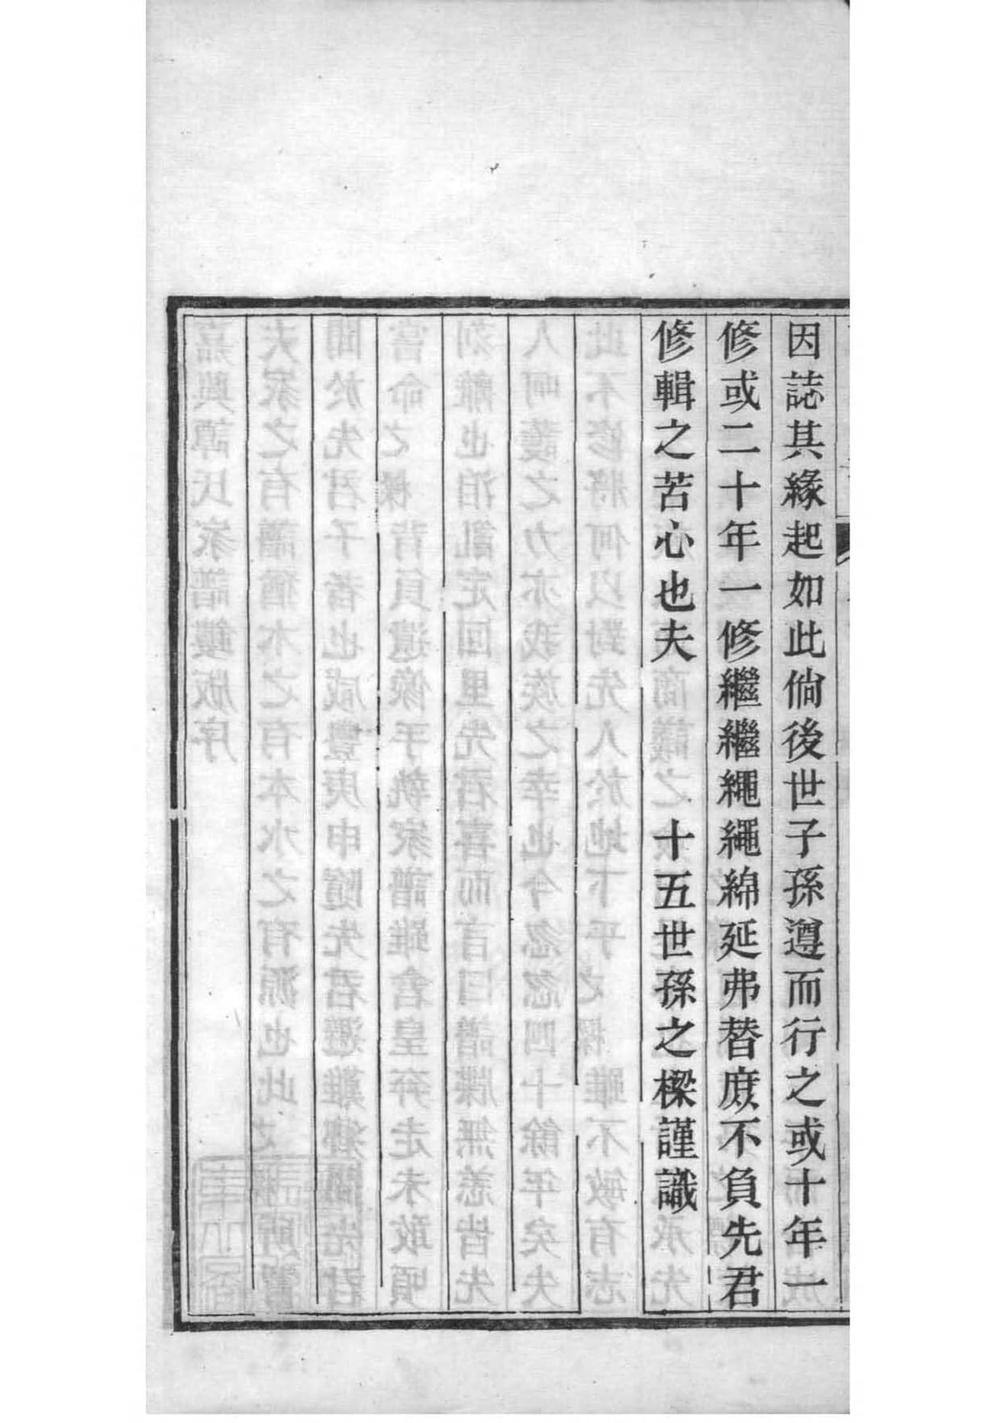 因誌其緣起如此倘後世子孫遵而行之或十年一
修或二十年一修繼繼繩繩綿延弗替庶不負先君
修輯之苦心也夫　　　十五世孫之樑謹識